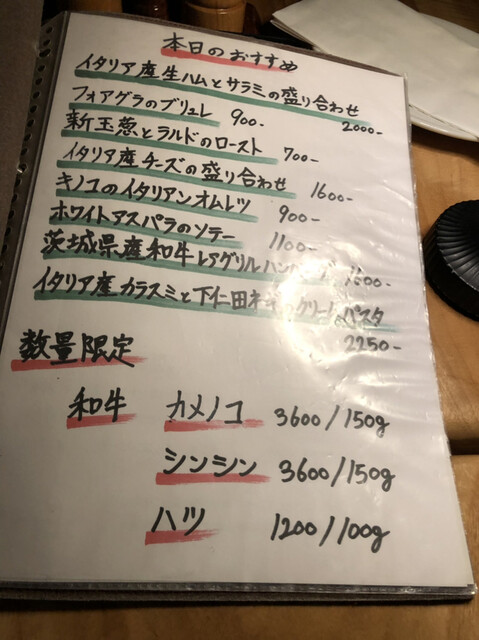 本日のおすすめ
イタリア産生ハムとサラミの盛り合わせ
2000-
フォアグラのブリュレ 900-
新玉葱とラルドのロースト 700-
イタリア産チーズの盛り合わせ 1600-
キノコのイタリアンオムレツ 900-
ホワイトアスパラのソテー 1100-
茨城県産和牛レアグリルハンバーグ
イタリア産カラスミと下仁田ネギのクリームパスタ
2250-
数量限定
和牛 カメノコ 3600/150g
シンシン 3600/150g
ハツ 1200/100g